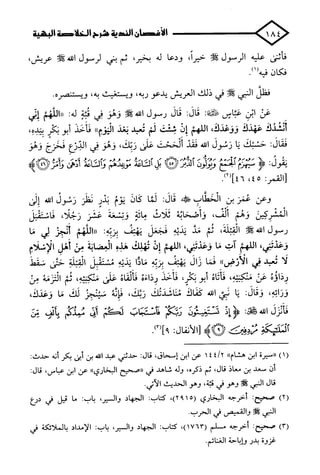 ١٨٤ الأغصان الندية شرح الخلاصة البهية
فأثنى عليه الرسول ﷺ خيراً، ودعا له بخير، ثم بني لرسول الله ﷺ عريش،
فكان فيه(١).
فظلَّ النبي ﷺ في ذلك العريش يدعو ربه، ويستغيث به، ويستنصره.
عَنْ ابْنِ عَبَّاسٍ قَالَ: قَالَ رسول الله ﷺ وَهُوَ فِي قُبَّةٍ لَهُ: «اللَّهُمَّ إِنِّي
أَنْشُدُكَ عَهْدَكَ وَوَعْدَكَ، اللهم إِنْ شِئْتَ لَمْ تُعبد بَعْدَ الْيَوْمِ» فَأَخَذَ أبو بَكْرٍ بِيَدِهِ،
فقَالَ: حَسْبُكَ يَا رَسُولَ الله فَقَدْ أَلْحَحْتَ عَلَى رَبِّكَ، وَهُوَ فِي الدِّرْعِ فَخَرَجَ وَهُوَ
يَقُولُ: ﴿سَيُهْزَمُ الْجَمْعُ وَيُوَلُّونَ الدُّبُرَ ﴿٤٥﴾ بَلِ السَّاعَةُ مَوْعِدُهُمْ وَالسَّاعَةُ أَدْهَى وَأَمَرُّ ﴿٤٦﴾﴾
[القمر: ٤٥، ٤٦](٢).
وعن عُمَرَ بن الْخَطَّابِ قَالَ: لَمَّا كَانَ يَوْمُ بَدْرٍ نَظَرَ رَسُولُ الله إِلَى
الْمُشْرِكِينَ وَهُمْ أَلْفٌ، وَأَصْحَابُهُ ثَلَاثُ مِائَةٍ وَتِسْعَةَ عَشَرَ رَجُلًا، فَاسْتَقْبَلَ
رسول الله ﷺ الْقِبْلَةَ، ثُمَّ مَدَّ يَدَيْهِ فَجَعَلَ يَهْتِفُ بِرَبِّهِ: «اللهُمَّ أَنْجِزْ لِي مَا
وَعَدْتَنِي، اللهم آتِ مَا وَعَدْتَنِي، اللهم إِنْ تُهْلِكْ هَذِهِ الْعِصَابَةَ مِنْ أَهْلِ الْإِسْلَامِ
لَا تُعبد فِي الْأَرْضِ» فَمَا زَالَ يَهْتِفُ بِرَبِّهِ مَادًّا يَدَيْهِ مُسْتَقْبِلَ الْقِبْلَةِ حَتَّى سَقَطَ
رِدَاؤُهُ عَنْ مَنْكِبَيْهِ، فَأَتَاهُ أبو بَكْرٍ، فَأَخَذَ رِدَاءَهُ فَأَلْقَاهُ عَلَى مَنْكِبَيْهِ، ثُمَّ الْتَزَمَهُ مِنْ
وَرَائِهِ، وَقَالَ: يَا نَبِيَّ الله كَفَاكَ مُنَاشَدَتُكَ رَبَّكَ، فَإِنَّهُ سَيُنْجِزُ لَكَ مَا وَعَدَكَ،
فَأَنْزَلَ الله ﴿إِذْ تَسْتَغِيثُونَ رَبَّكُمْ فَاسْتَجَابَ لَكُمْ أَنِّي مُمِدُّكُمْ بِأَلْفٍ مِنَ
الْمَلَائِكَةِ مُرْدِفِينَ ﴿٩﴾﴾ [الأنفال: ٩](٣).
(١) «سيرة ابن هشام» ١٤٤/٢ عن ابن إسحاق، قال: حدثني عبد الله بن أبي بكر أنه حدث:
أن سعد بن معاذ قال، ثم ذكره، وله شاهد في «صحيح البخاري» عن ابن عباس، قال:
قال النبي ﷺ وهو في قبّة، وهو الحديث الآتي.
(٢) صحيح: أخرجه البخاري (٢٩١٥)، كتاب: الجهاد والسير، باب: ما قيل في درع
النبي ﷺ والقميص في الحرب.
(٣) صحيح: أخرجه مسلم (١٧٦٣)، كتاب: الجهاد والسير، باب: الإمداد بالملائكة في
غزوة بدر وإباحة الغنائم.